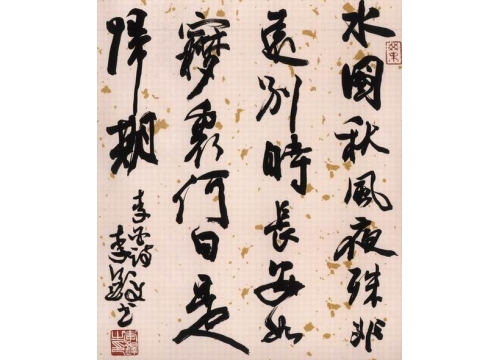 水國秋風夜殊非
遠別時長安如
夢裏何日是
歸期
李白詩
李鐸書